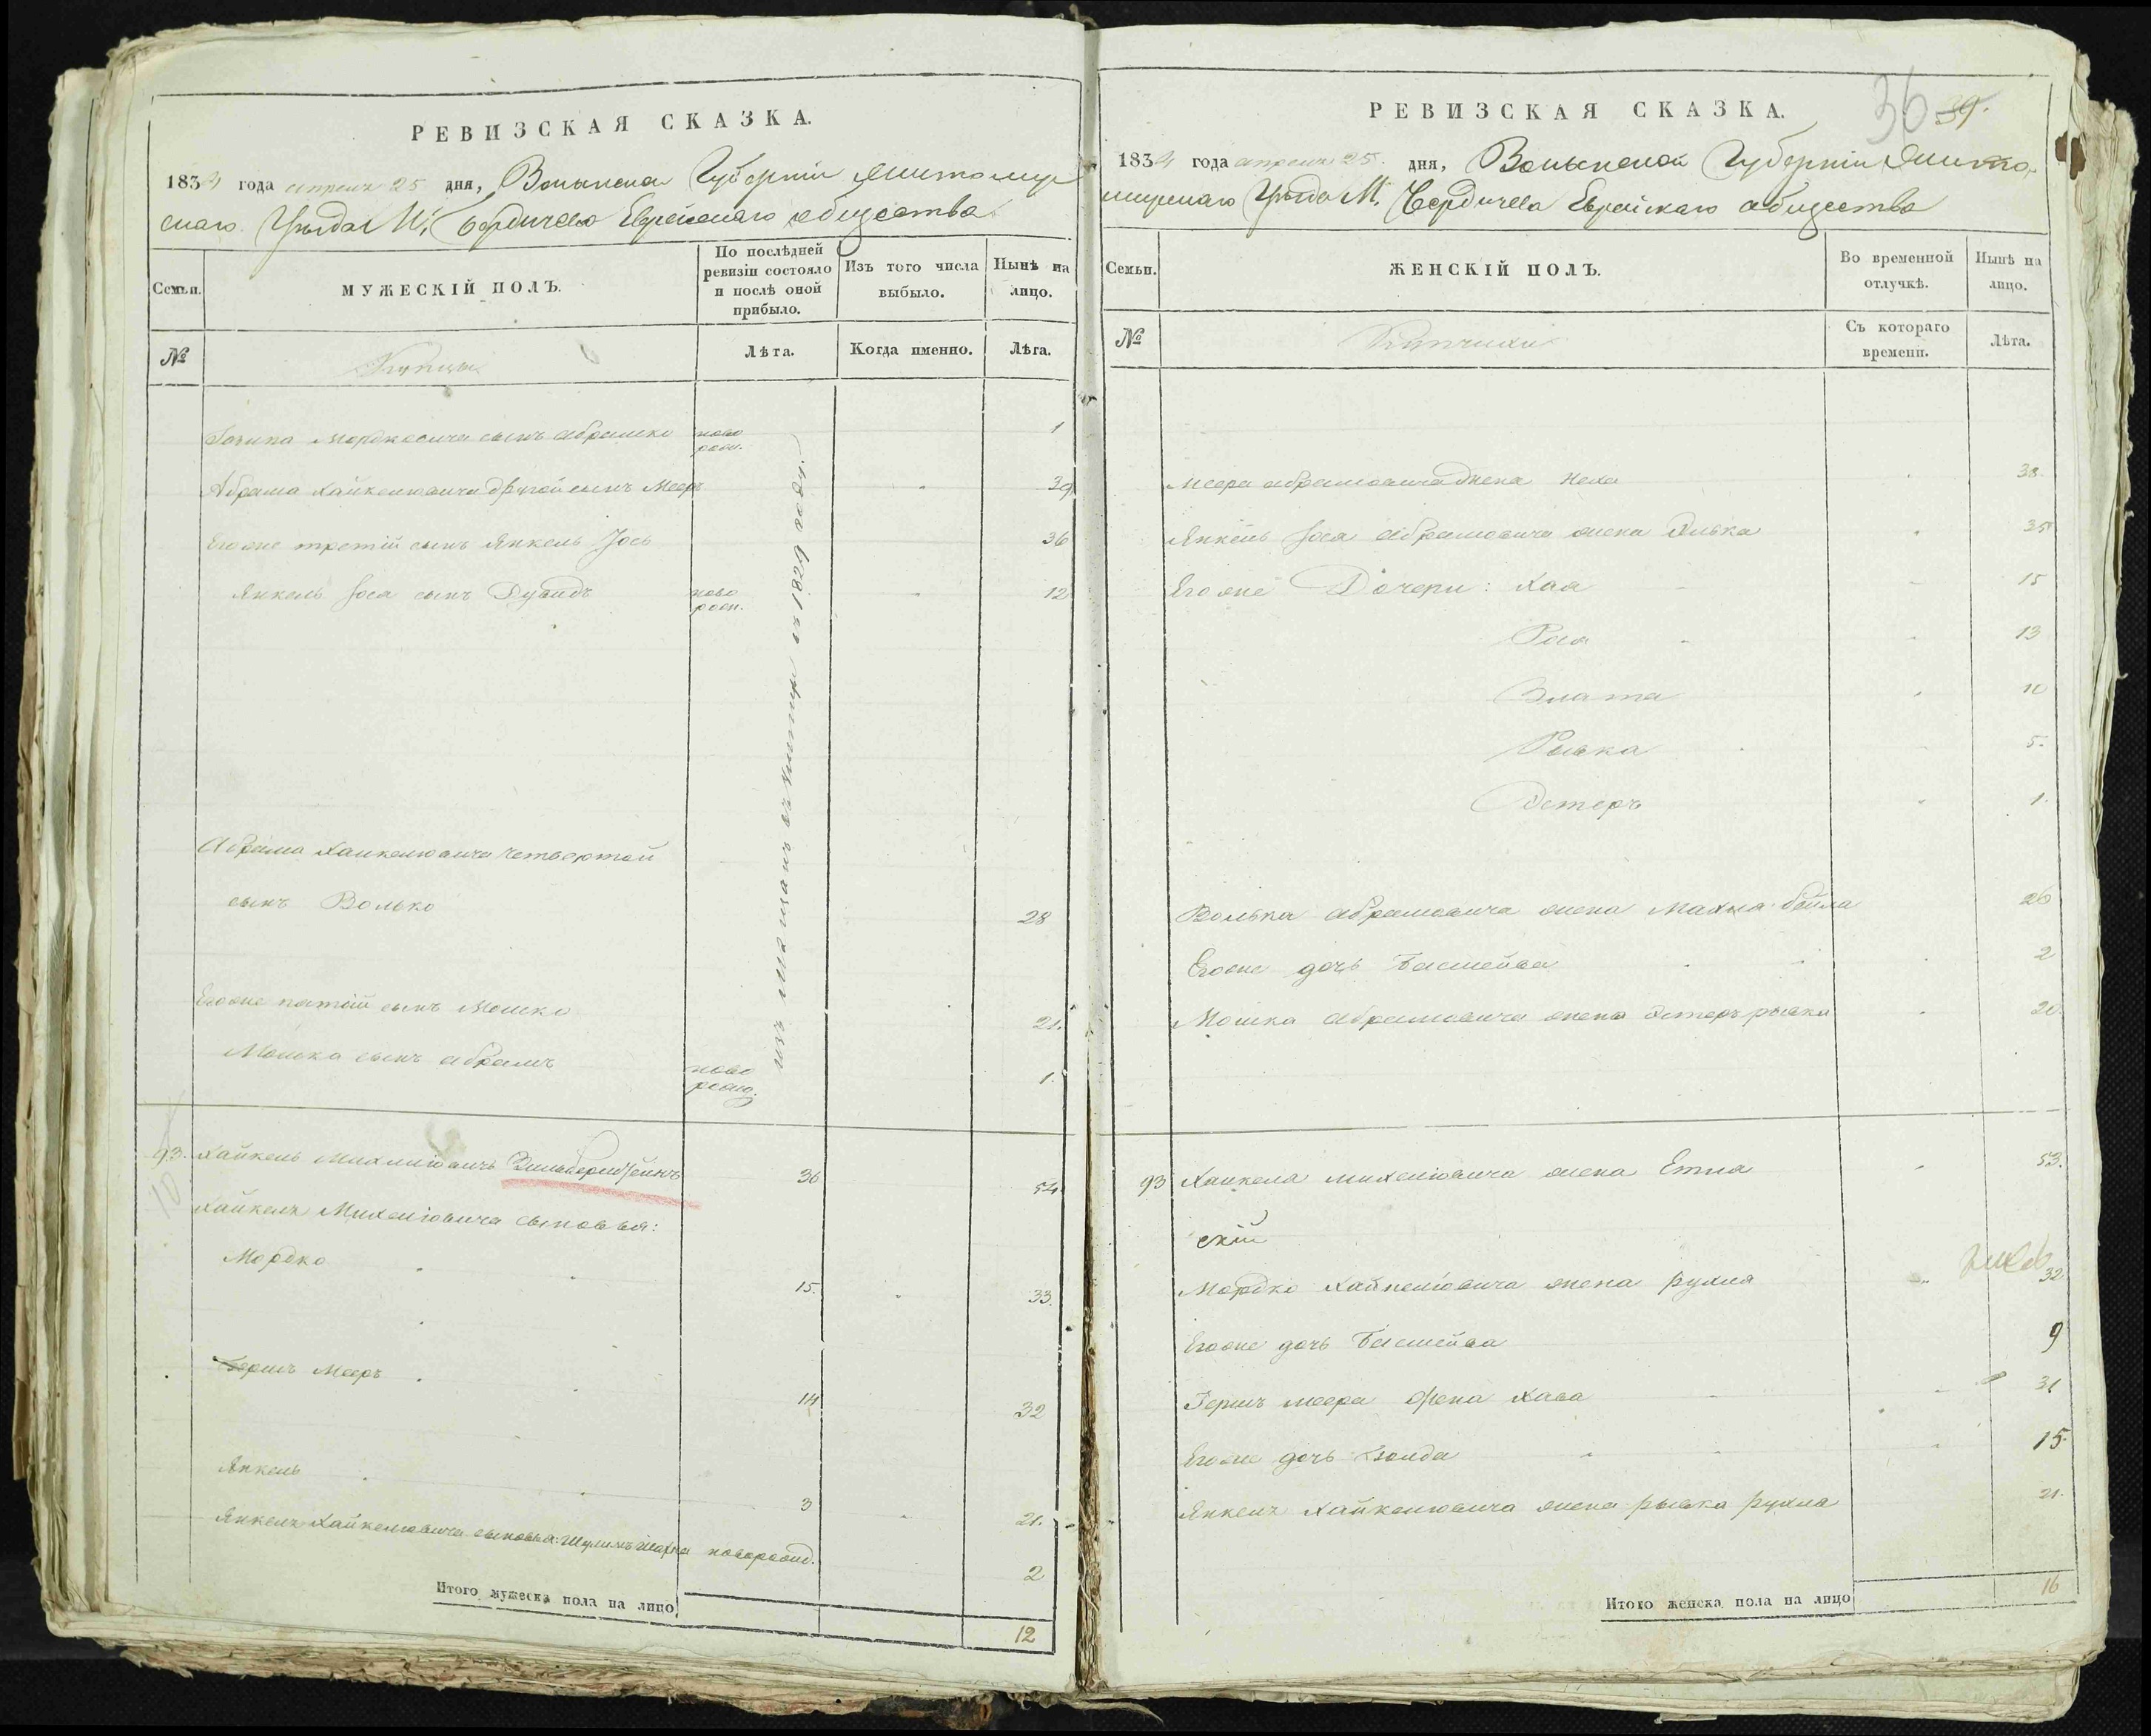 РЕВИЗСКАЯ СКАЗКА.
1834 года апреля 25 дня, Волынской Губернiи Житомир
скаго Уѣзда М. Бердичева Еврейскаго общества
Семьи.
МУЖЕСКІЙ ПОЛЪ.
По послѣдней ревизіи состояло и послѣ оной прибыло.
Изъ того числа выбыло.
Нынѣ на лицо.
№
Купцы
Лѣта.
Когда именно.
Лѣта.
Мордковича сынъ Абрамко ново рож. 1
Абрама Хайкелювича другой сынъ Мееръ 39
Егоже третій сынъ Янкель Іось 36
Янкель Іося сынъ Дувидъ ново рож. 12
Абрама Хайкелювича четвертой
сынъ Волько 28
Егоже пятій сынъ Мошко 21.
Мошка сынъ Абрамъ ново рожд. 1
изъ мещанъ въ 1829 году.
93. Хайкель Михелювичъ Зильберштейнъ 36 54
Хайкеля Михелювича сыновья:
Мордко 15. 33.
Гершъ Мееръ 14 32
Янкель 3 21.
Янкеля Хайкелювича сыновья: Шулимъ Шахна новорожд. 2
Итого мужеска пола на лицо 12
36 39.
РЕВИЗСКАЯ СКАЗКА.
1834 года апреля 25. дня, Волынской Губернiи Жито-
мирскаго Уѣзда М. Бердичева Еврейскаго общества
Семьи.
ЖЕНСКІЙ ПОЛЪ.
Во временной отлучкѣ.
Нынѣ на лицо.
№
Купчихи
Съ котораго времени.
Лѣта.
Меера Абрамовича жена Неха 38
Янкель Іося Абрамовича жена 35
Егоже Дочери: Хая 15
Рася 13
Злата 10
Рывка 5.
Эстеръ 1.
Волька Абрамовича жена Махла Бейла 26
Егоже дочь Басшейва 2
Мошка Абрамовича жена Эстеръ рывка 20.
93 Хайкеля Михелювича жена Етля 53.
скій
Мордко Хайкелювича жена рухля 32
Егоже дочь Басшейва 9
Гершъ меера жена Хава 31
Егоже дочь 15.
Янкеля Хайкелювича жена рывка рухля 21.
Итого женска пола на лицо 16